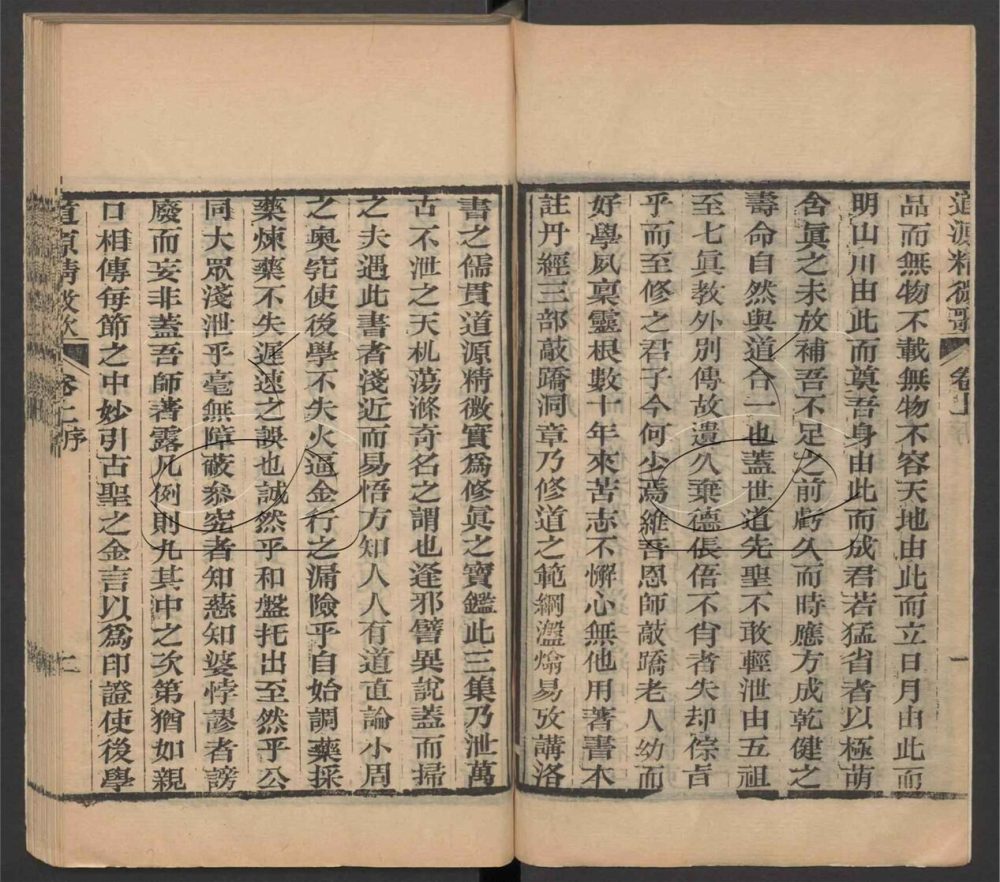 道源精微歌 卷上 序 一
品而無物不載無物不容天地由此而立日月由此而
明山川由此而奠吾身由此而成君若猛省者以極萌
含眞之未放補吾不足之前虧久而時應方成乾健之
壽命自然與道合一也蓋世道先聖不敢輕泄由五祖
至七眞教外別傳故遺久棄德倀俉不肖者失却倧旨
乎而至修之君子今何少焉維吾恩師敲蹻老人幼而
好學夙稟靈根數十年來苦志不懈心無他用著書本
註丹經三部敲蹻洞章乃修道之範綱灔爚易攷講洛
書之儒貫道源精微實爲修眞之寶鑑此三集乃泄萬
古不泄之天机蕩滌奇名之謂也逢邪譬異說蓋而掃
之夫遇此書者淺近而易悟方知人人有道直論小周
之奥究使後學不失火逼金行之漏險乎自始調藥採
藥煉藥不失遲速之誤也誠然乎和盤托出至然乎公
同大眾淺泄乎毫無障蔽參究者知慈知婆悖謬者謗
廢而妄非蓋吾師著露凡例則九其中之次第猶如親
口相傳每節之中妙引古聖之金言以爲印證使後學
道源精微歌 卷二序 二